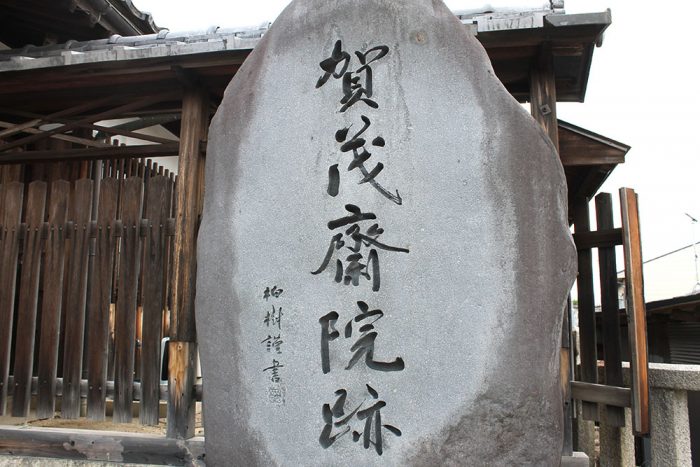 賀茂齋院跡
柳樹謹書